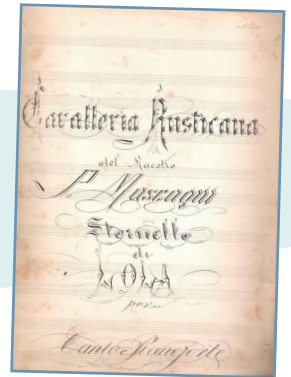 Cavalleria Rusticana
del Maestro
P. Mascagni
Stornello
di
LOLA
per
Canto e Pianoforte